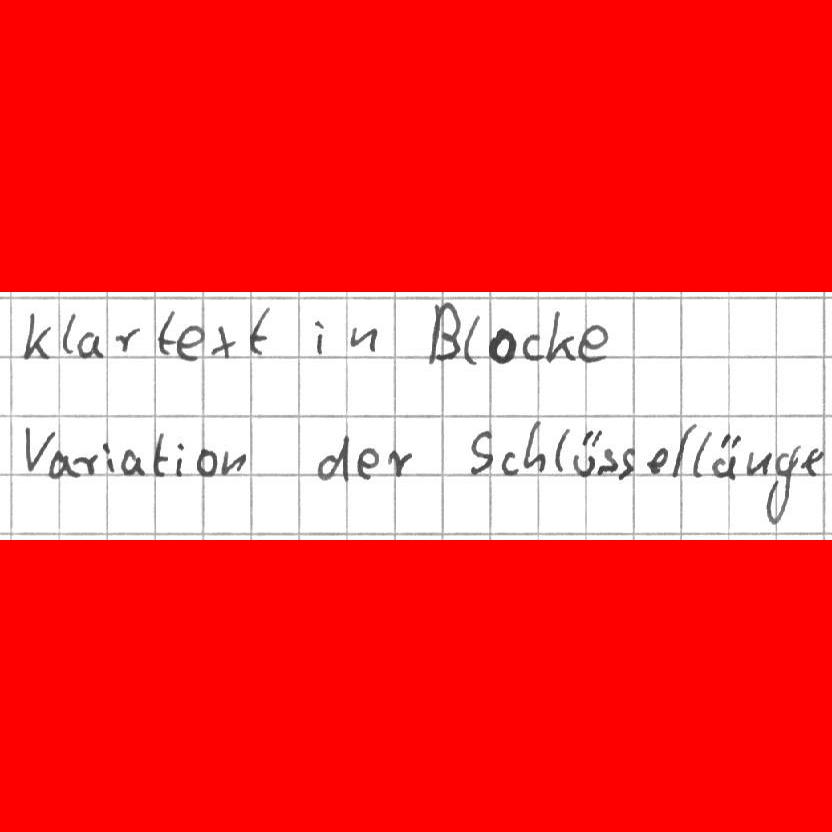 Klartext in Blocke
Variation der Schlüssellänge